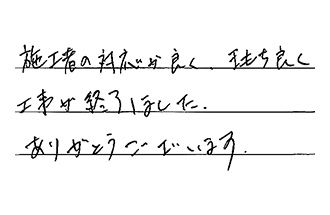 施工者の対応が良く、気持ち良く
工事が終了しました.
ありがとうございます.